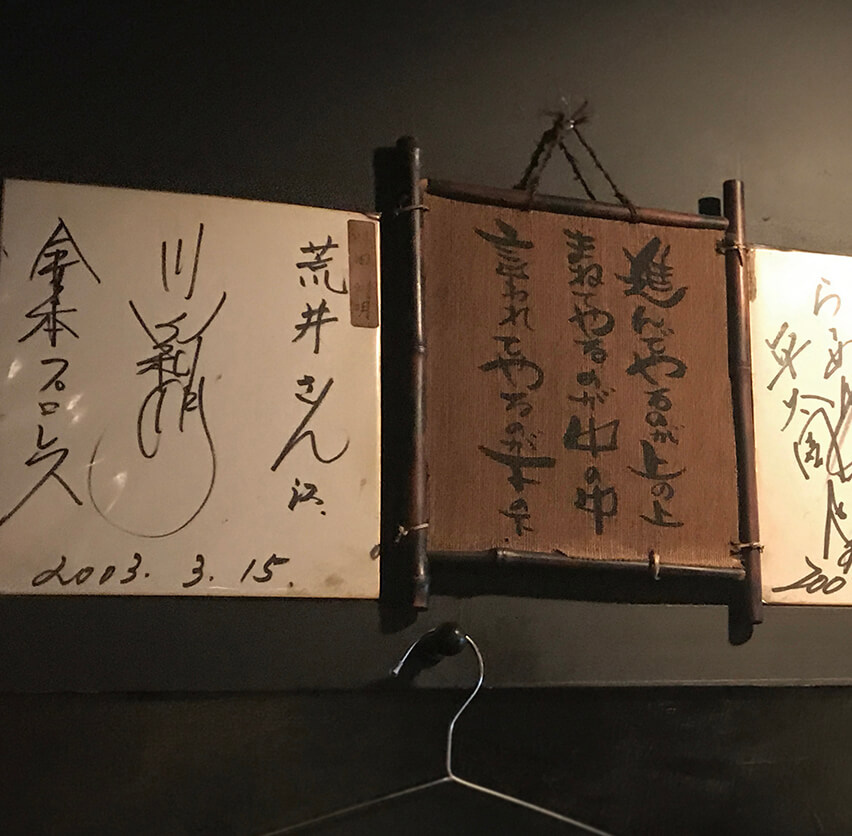 荒井さん江
川田利明
全日本プロレス
2003. 3. 15.
進んでやるのが上の上
まねてやるのが中の中
言われてやるのが下の下
200